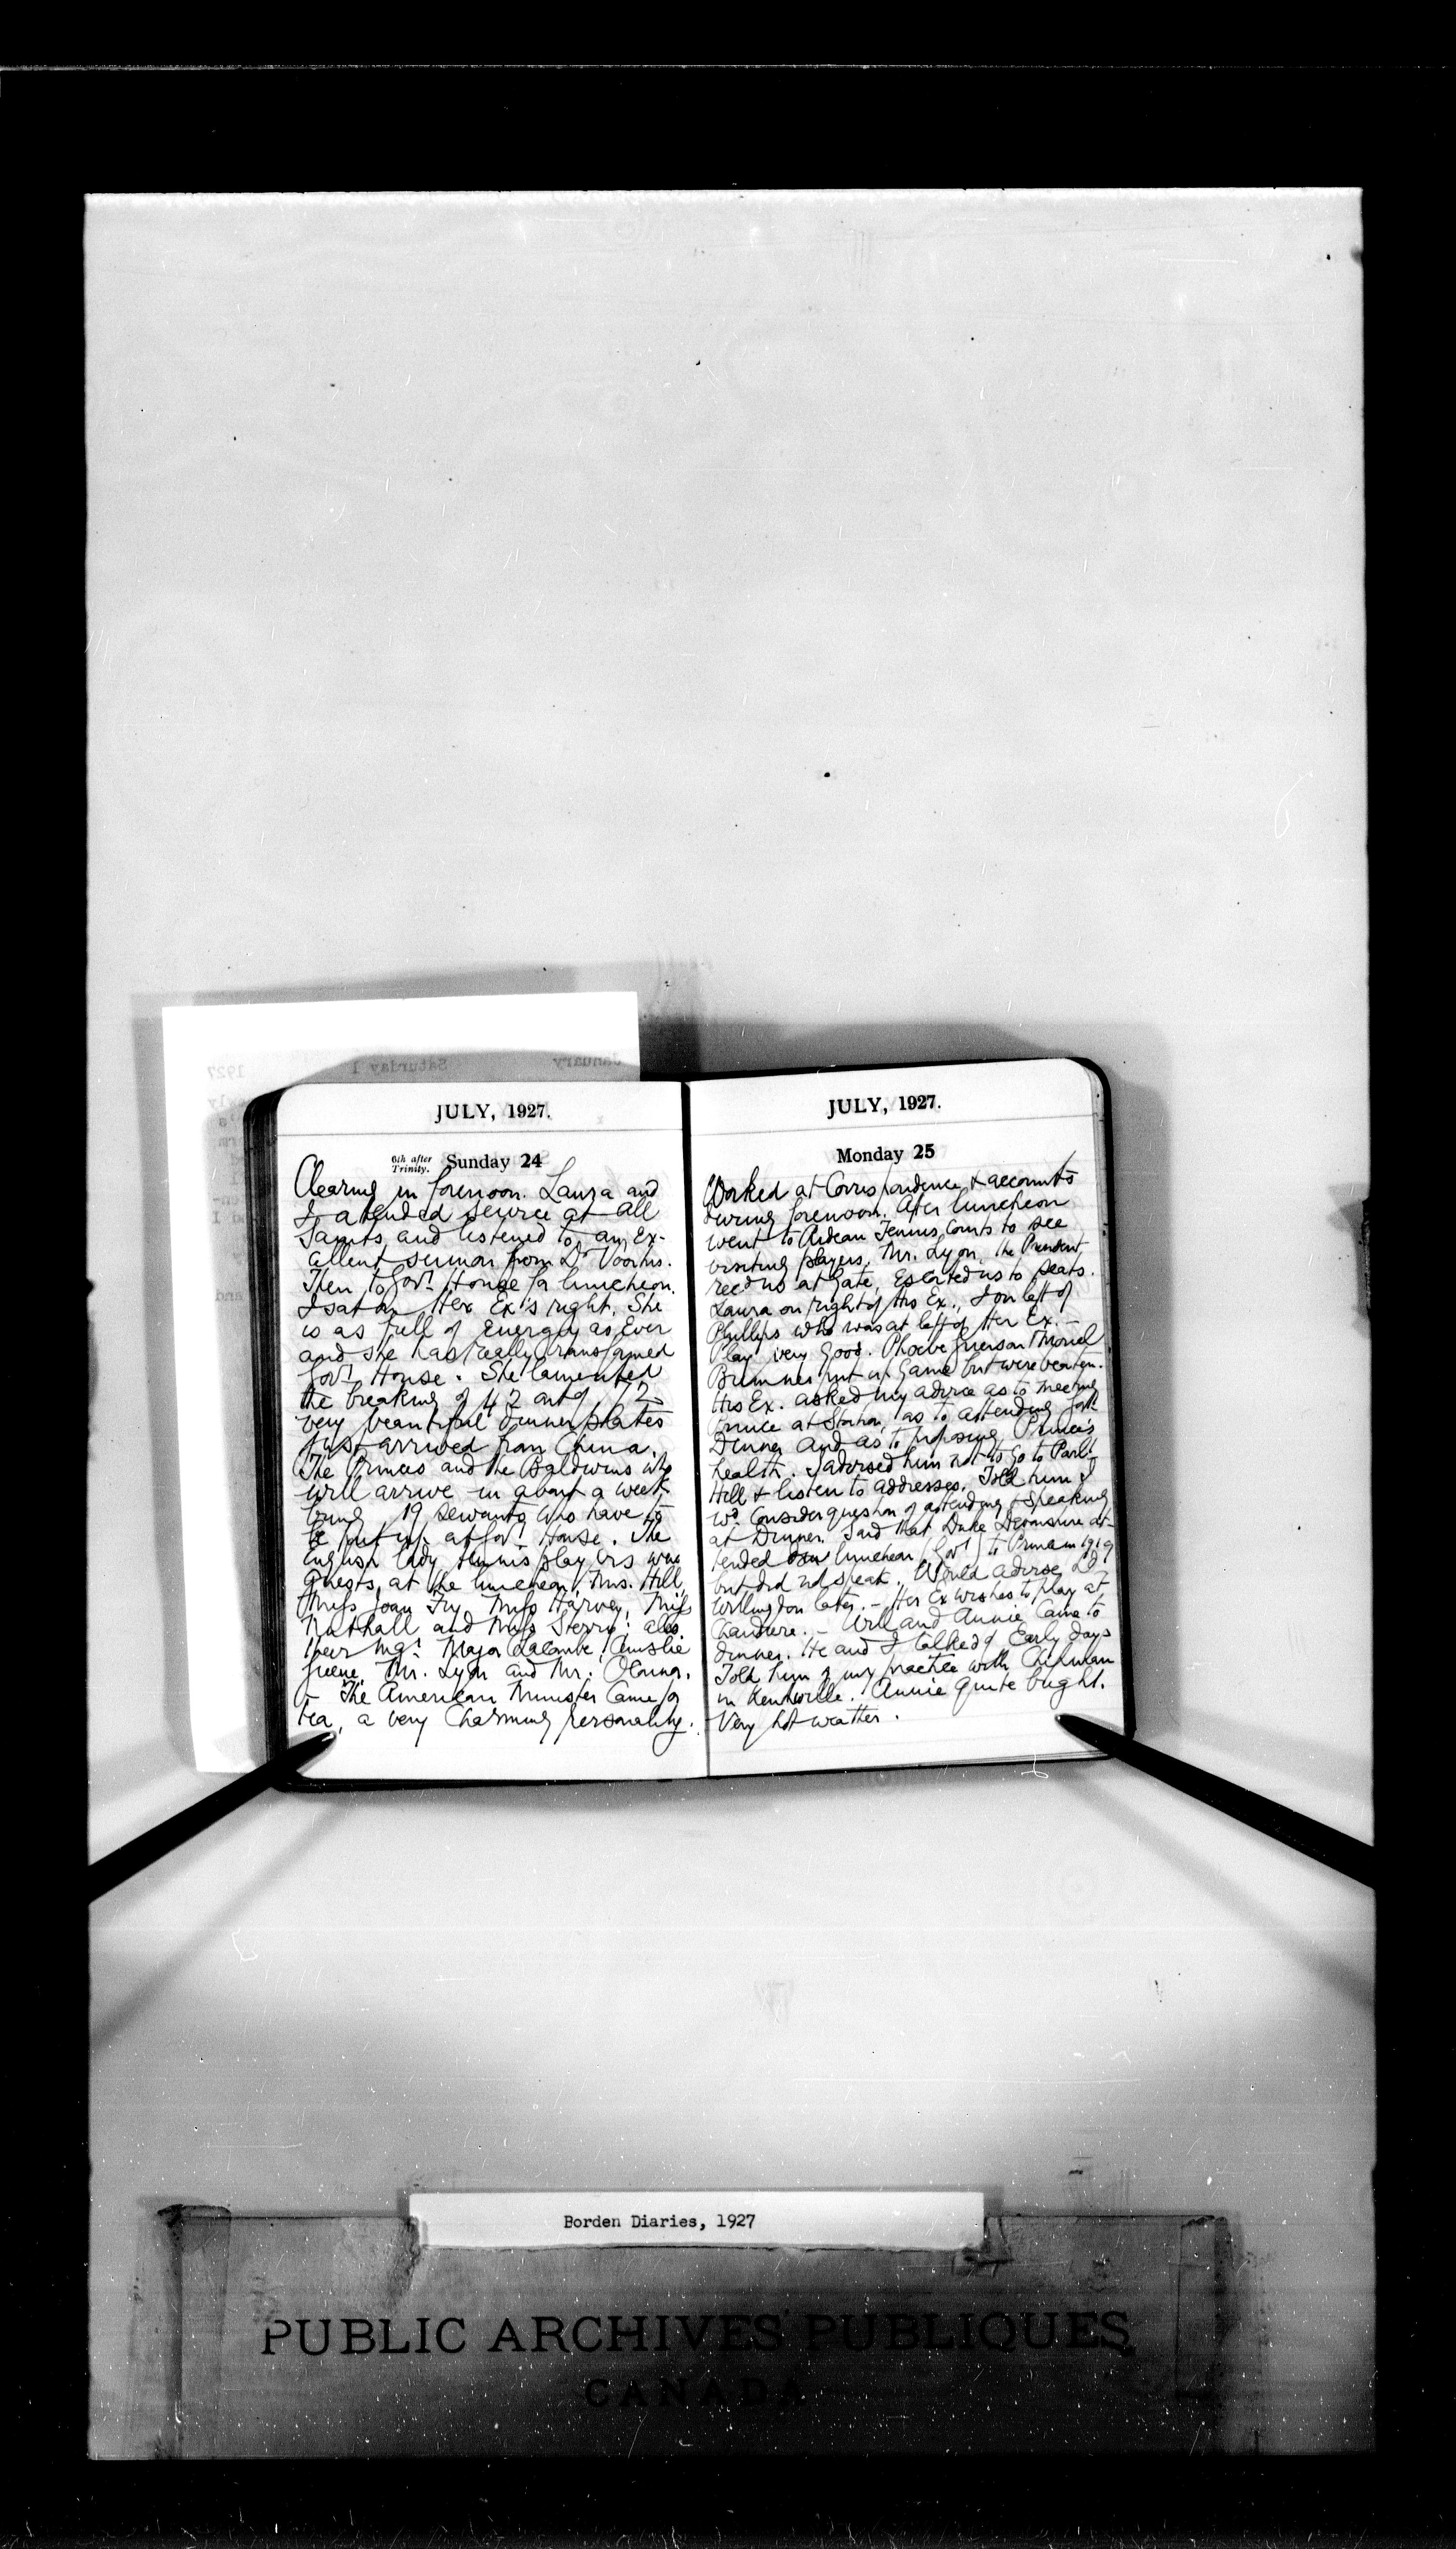 January Saturday 1 1927
JULY, 1927.
6th after Trinity. Sunday 24
Clearing in forenoon. Laura and
I attended service at All
Saints and listened to an Ex-
cellent sermon from Dr Voorhis.
Then to Govt House for luncheon.
I sat on Her Ex's right. She
is as full of energy as ever
and she has really transformed
Govt House. She lamented
the breaking of 42 out of 72
very beautiful dinner plates
just arrived from China.
The Princes and the Baldwins who
will arrive in about a week
bring 19 servants who have to
be put up at Govt House. The
English lady tennis players were
guests at the luncheon, Mrs. Hill,
Miss Joan Fry, Miss Harvey, Miss
Nuthall and Miss Sterry: also
their Mgr Major Lacombe, Ainslie
Greene, Mr. Lyon and Mr.
- The American Minister came for
tea, a very charming personality.
JULY, 1927.
Monday 25
Worked at Correspondence & accounts
during forenoon. After luncheon
went to Rideau Tennis Courts to see
visiting players. Mr. Lyon, the President,
recd us at Gate, Escorted us to seats.
Laura on right of His Ex., I on left of
Phillips who was at left of Her Ex. -
Play very good. Phoebe Grierson & Muriel
put up Game but were beaten.
His Ex. asked my advice as to meeting
Prince at Station, as to attending
Dinner and as to proposing Prince's
health. I advised him not to go to Parlt
Hill & listen to addresses. Told him I
wd consider question of attending & speaking
at Dinner. Said that Duke Devonshire at-
tended luncheon (Govt) to Prince in 1919
but did not speak. Would advise Ld
Willingdon later. - Her Ex wishes to play at
Chaudiere. - Will and Annie came to
dinner. He and I talked of Early days
Told him of my practice with Chipman
in Kentville. Annie quite bright.
Very hot weather.
Borden Diaries, 1927
PUBLIC ARCHIVES PUBLIQUES
CANADA